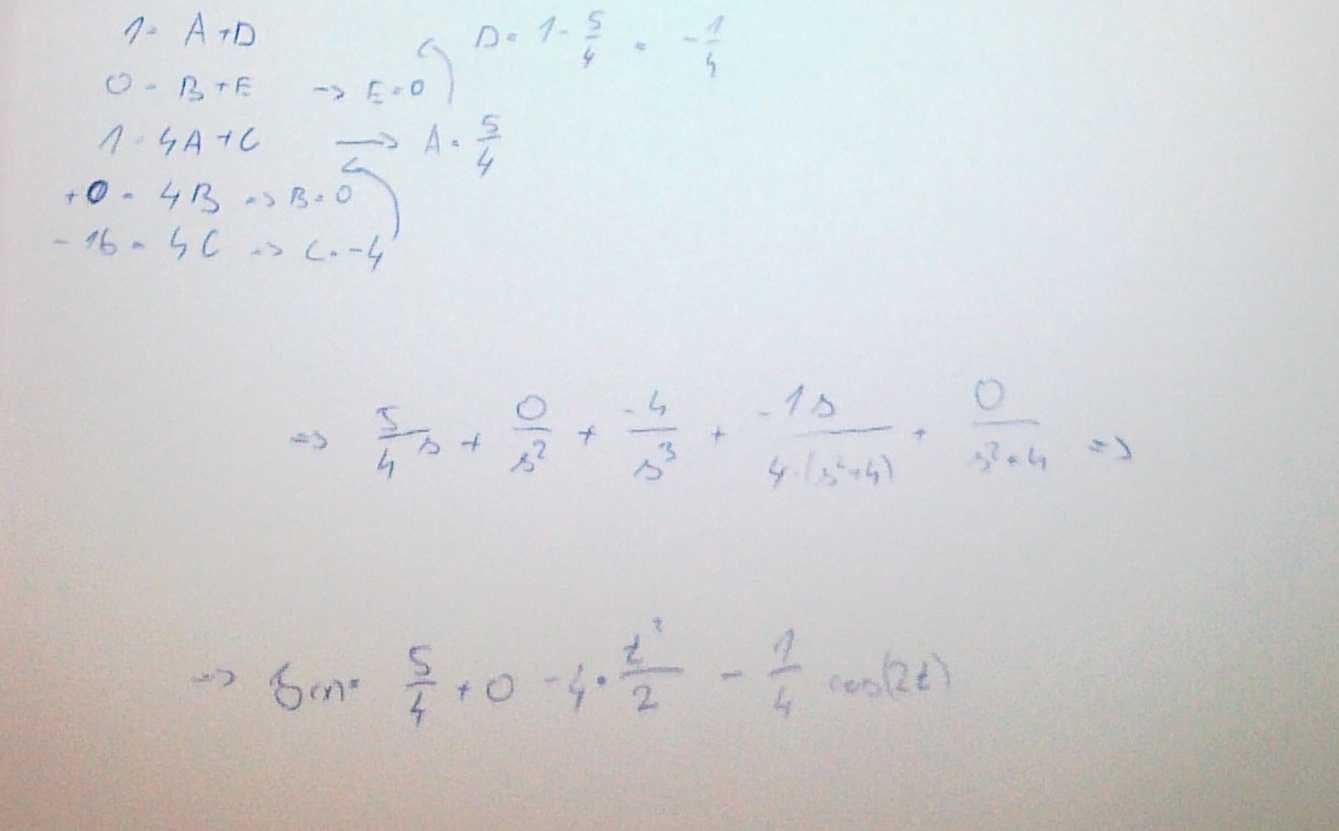 1 = A+D D = 1 - 5/4 = -1/4
0 = B+E → E=0
1 = 4A+C → A = 5/4
+0 = 4B => B=0
-16 = 4C => C=-4
=> 5/4 s + 0/s² + -4/s³ + -1s/4·(s²+4) + 0/s²+4 =>
=> 5/4 + 0 -4·t²/2 - 1/4 cos(2t)